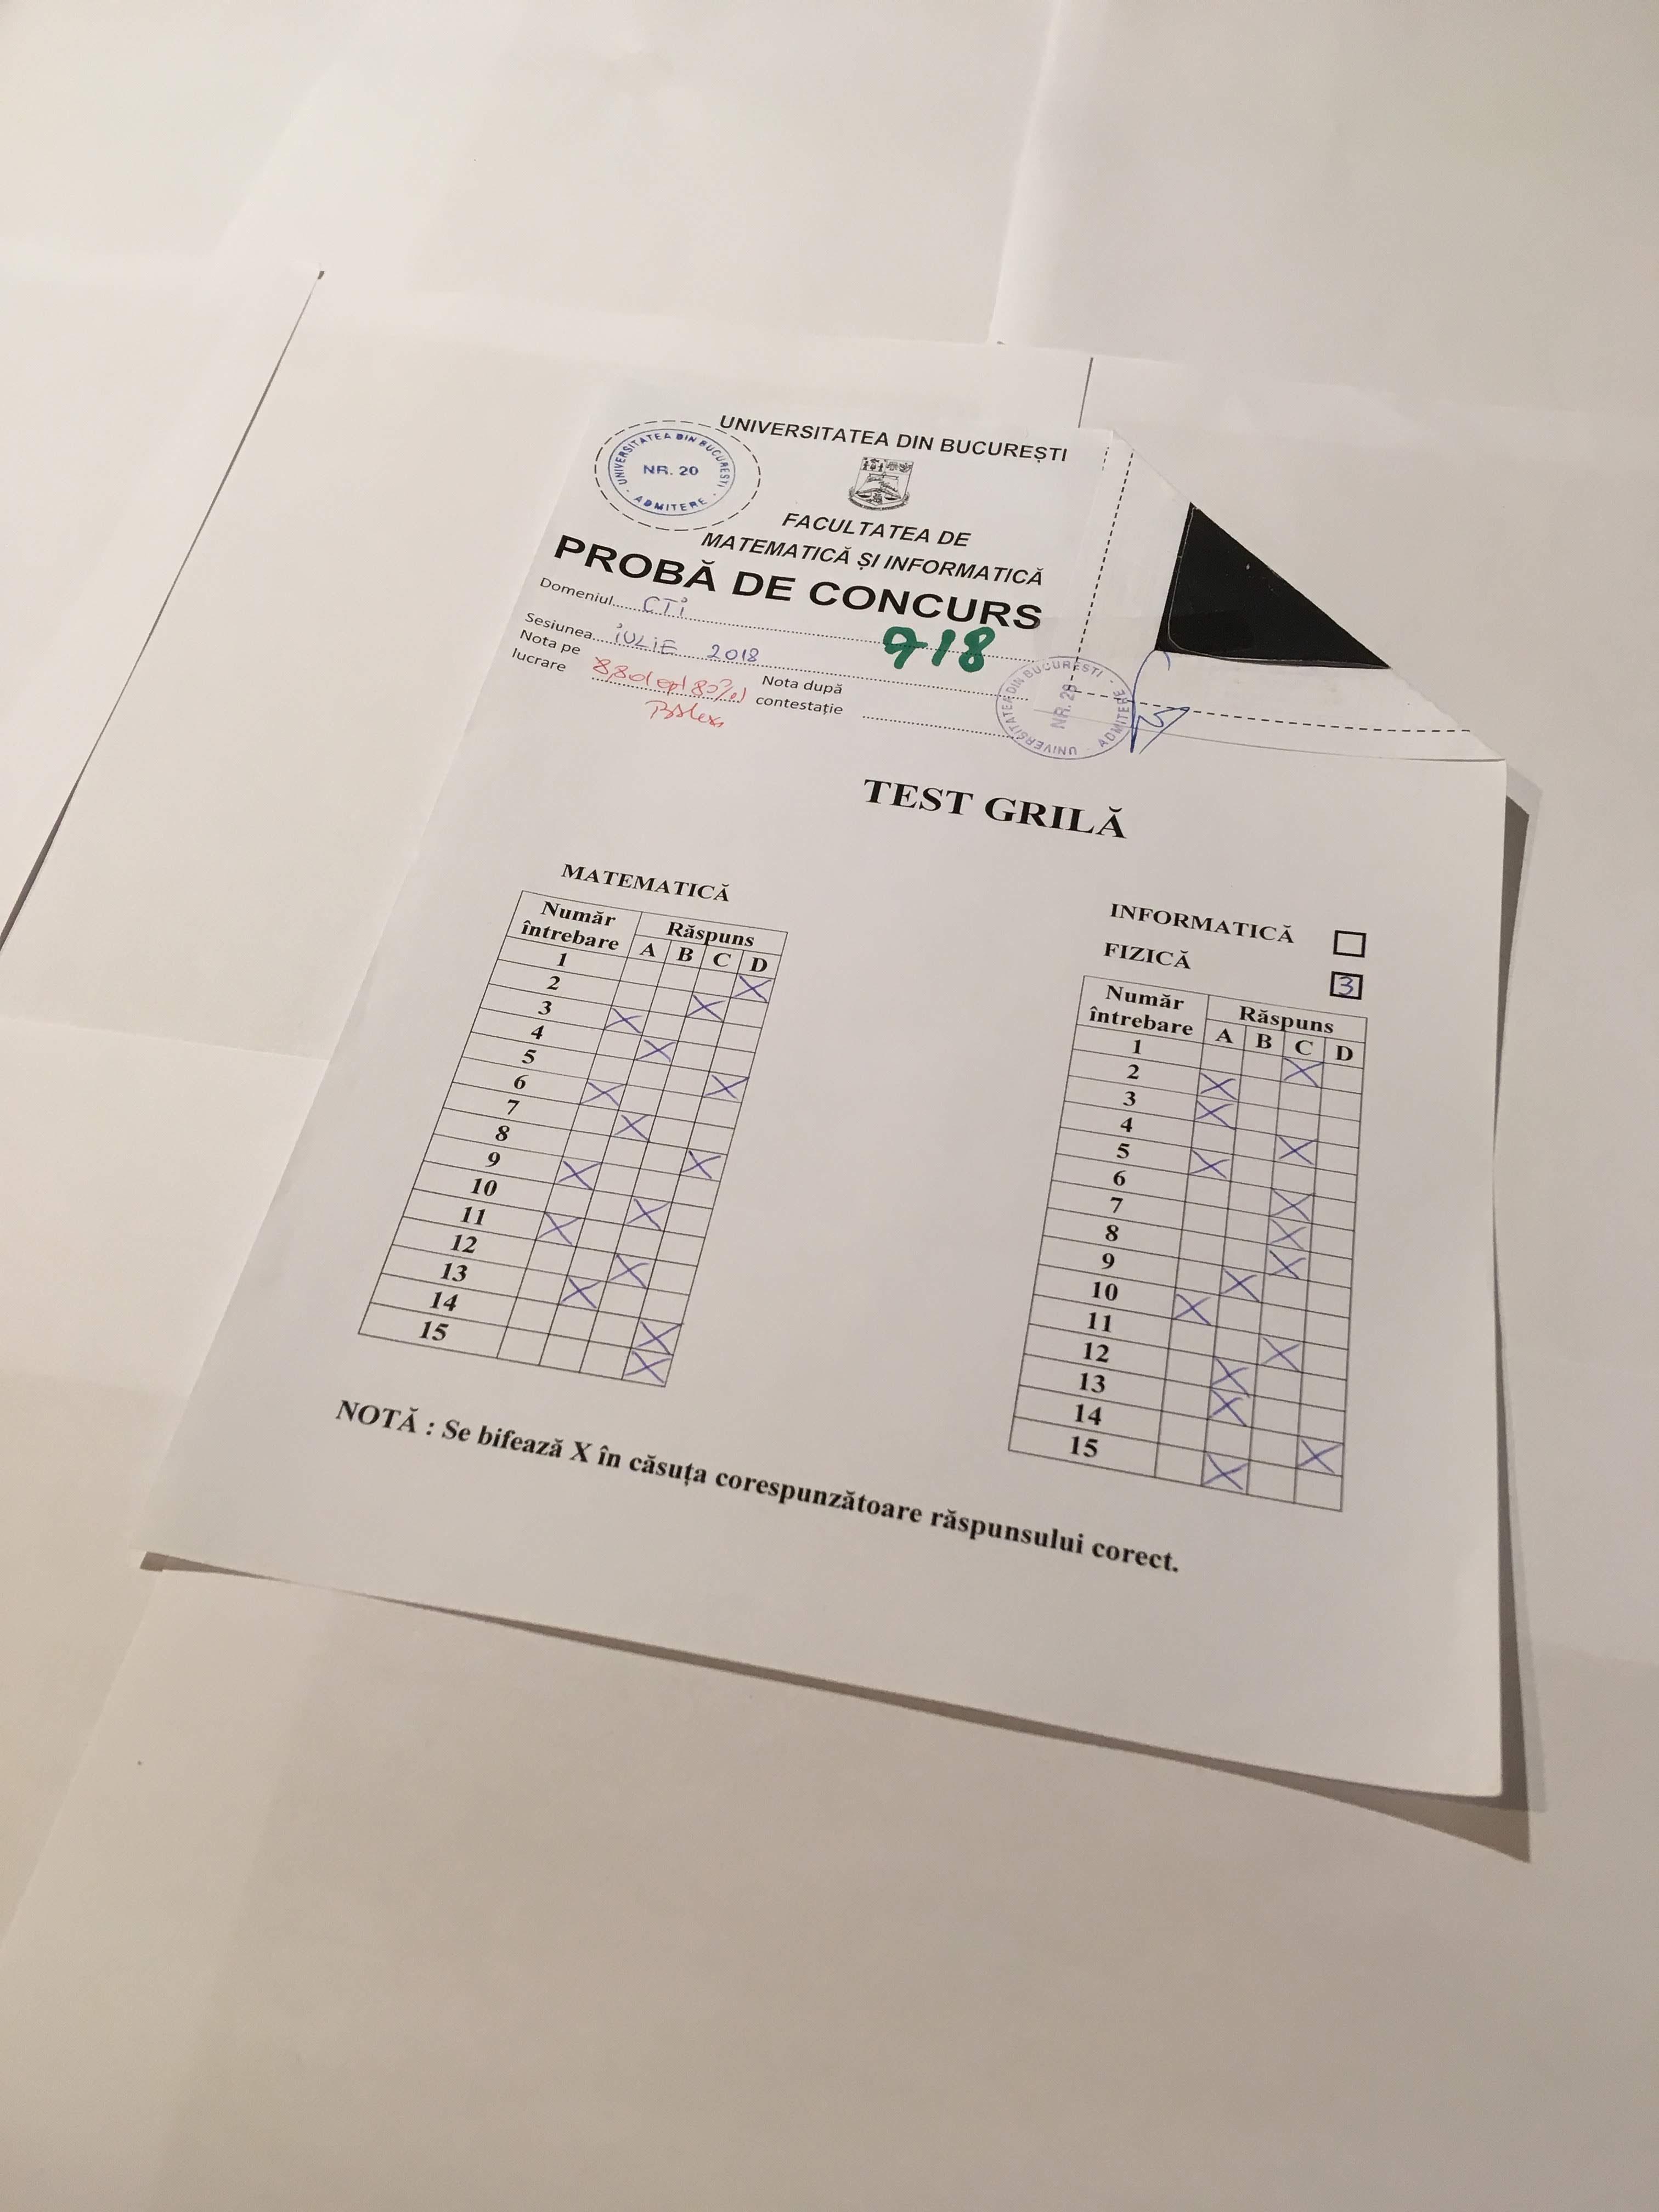 UNIVERSITATEA DIN BUCUREȘTI
UNIVERSITATEA DIN BUCUREȘTI
NR. 20
ADMITERE
FACULTATEA DE
MATEMATICĂ ȘI INFORMATICĂ
PROBĂ DE CONCURS
Domeniul CTI
918
Sesiunea IULIE 2018
Nota pe lucrare 8,80
Nota după contestație
UNIVERSITATEA DIN BUCUREȘTI
NR. 20
ADMITERE
TEST GRILĂ
MATEMATICĂ
Număr întrebare Răspuns
A B C D
1 X
2 X
3 X
4 X
5 X
6 X
7 X
8 X
9 X
10 X
11 X
12 X
13 X
14 X
15 X
INFORMATICĂ
FIZICĂ 3
Număr întrebare Răspuns
A B C D
1 X
2 X
3 X
4 X
5 X
6 X
7 X
8 X
9 X
10 X
11 X
12 X
13 X
14 X
15 X
NOTĂ : Se bifează X în căsuța corespunzătoare răspunsului corect.